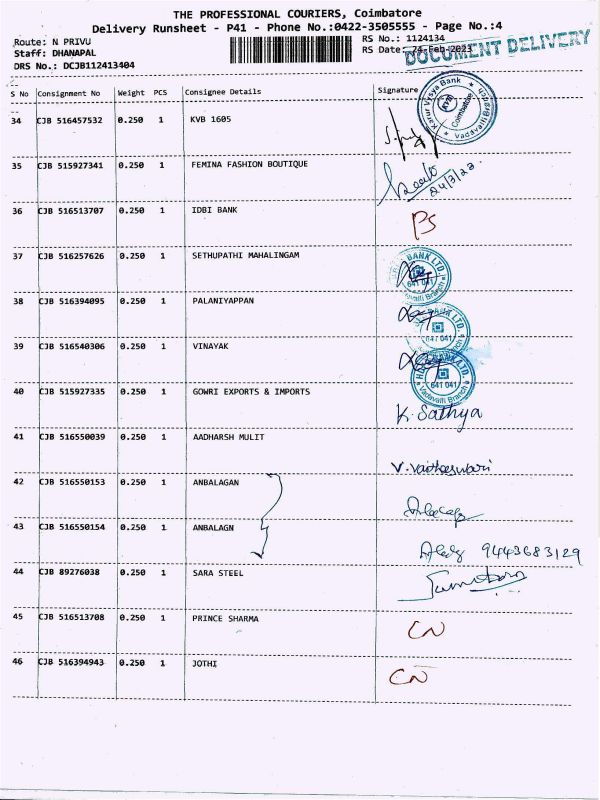 THE PROFESSIONAL COURIERS, Coimbatore
Delivery Runsheet - P41 - Phone No.:0422-3505555 - Page No.:4
Route: N PRIVU
RS No.: 1124134
Staff: DHANAPAL
RS Date: 24-Feb-2023
DOCUMENT DELIVERY
DRS No.: DCJB112413404
S No Consignment No Weight PCS Consignee Details Signature
Karur Vysya Bank KVB Coimbatore Vadavalli Branch
34 CJB 516457532 0.250 1 KVB 1605
35 CJB 515927341 0.250 1 FEMINA FASHION BOUTIQUE
24/3/23
36 CJB 516513707 0.250 1 IDBI BANK PS
37 CJB 516257626 0.250 1 SETHUPATHI MAHALINGAM
BANK LTD. 641 041 Vadavalli Branch
38 CJB 516394095 0.250 1 PALANIYAPPAN
BANK LTD. 641 041
39 CJB 516540306 0.250 1 VINAYAK
BANK LTD. 641 041 Vadavalli Branch
40 CJB 515927335 0.250 1 GOWRI EXPORTS & IMPORTS
K. Sathya
41 CJB 516550039 0.250 1 AADHARSH MULIT
42 CJB 516550153 0.250 1 ANBALAGAN
43 CJB 516550154 0.250 1 ANBALAGN
9443683129
44 CJB 89276038 0.250 1 SARA STEEL
45 CJB 516513708 0.250 1 PRINCE SHARMA CN
46 CJB 516394943 0.250 1 JOTHI CN